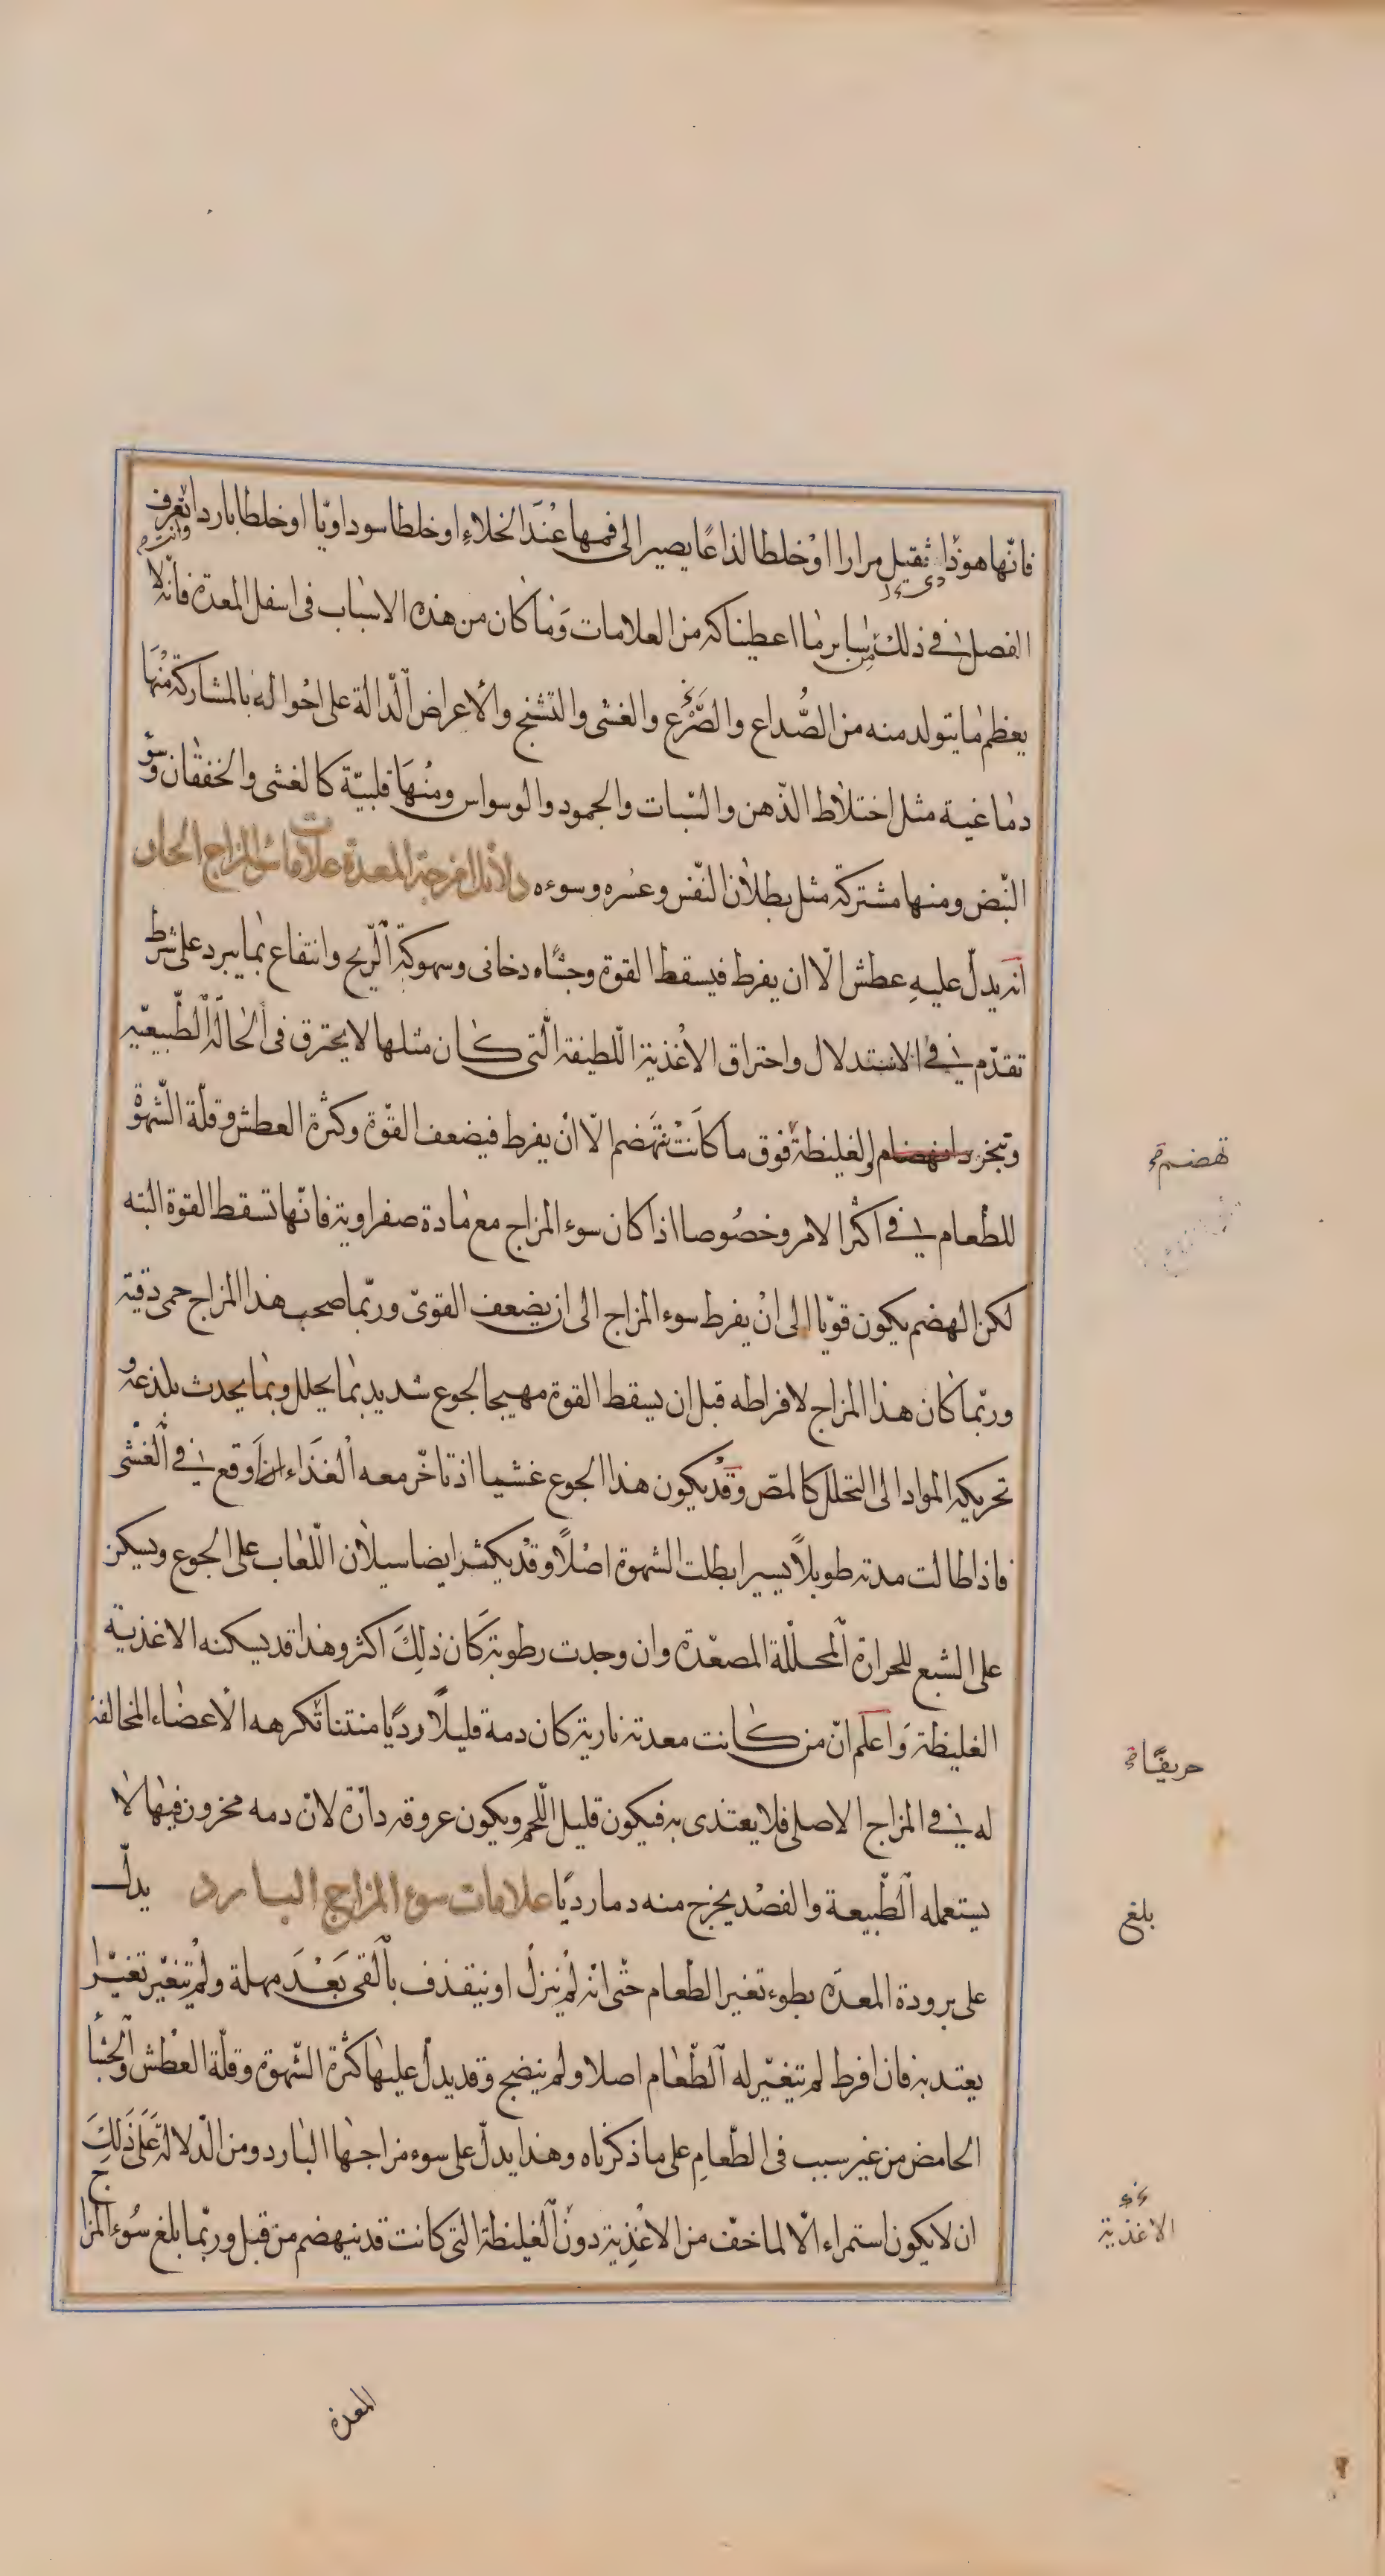 فانّها هوذا ثقيل مرارا اوْ خلطا لذاعًا يصير الى فمها عنْدَ الخلاءِ او خلطا سوداويّا او خلطا باردا تعرف
الفصل فى ذلك من ساير ما اعطيناكه من العلامات وَما كان من هذه الاسباب فى اسفل المعدة فانّه لا
يعظم ما يتولد منه من الصُّداع والصَّرْع والغشى والتشنج والاعراض الدّالة على احْواله بالمشاركة منْهَا
دماغية مثل اختلاط الذّهن والسّبات والجمود والوسواس ومنْهَا قلبيّة كالغشى والخفقان وسوٓء
النّبض ومنها مشتركة مثل بطلان النّفس وعسْره وسوءه دلائل امزجة المعدة علامات سوء المزاج الحار
انه يدلّ عليهِ عطش الّا ان يفرط فيسقط القوة وجشاء دخانى وسهوكة الرّيح وانتفاع بما يبرد على شرط
تقدّم فى الاستدلال واحتراق الاغْذية اللّطيفة الّتى كان مثلها لا يحترق فى الحالة الطّبيعيّه
وتبخر انهضام الغليظة فوق ما كانَتْ تنهَضم الّا انْ يفرط فيضعف القوّة وكثرة العطش وقلّة الشّهوْة
للطعام فى اكثر الامر وخصُوصا اذا كان سوء المزاج مع مادة صفراوية فانّها تسقط القوة البته
لكن الهضم يكون قويّا الى انْ يفرط سوء المزاج الى ان يضعف القوىّ وربّما صحب هذا المزاج حمى دقيّة
وربّما كان هذا المزاج لافراطه قبل ان يسقط القوة مهيجا لجوع شديد بما يحلل وبما يحدث بلذعه و
تحريكه المواد الى التحلل كالمصّ وَقدْ يكون هذا الجوع غشيا اذ تاخّر معه الْغَذاء ان اَوقع فى الغشى
فاذا طالت مدته طويلاً يسيرا بطلت الشهوة اصْلًا وقدْ يكثر ايضا سيلان اللّعاب على الجوع ويسكن
على الشبع للحرارة المحلّلة المصعّدة وان وجدت رطوبة كَان ذلِكَ اكثر وهذا قد يسكنه الاغذية
الغليظة وَاعلم انّ من كانت معدته نارية كان دمه قليلًا رديًا منتنا تكرهه الاعضاء المخالفة
له فى المزاج الاصلى فلا يغتذى به فيكون قليل اللّحم ويكون عروقه دارّة لانّ دمه مخزون فيها لا
يستعمله الطّبيعة والفصْد يخرج منه دما رديًا علامات سوء المزاج البارد يدلّ
على برودة المعدة بطوء تغير الطعام حتّى انّه لمْ ينزلْ او يتقذف بالْقى بَعْدَ مهلة ولمْ يتغيّر تغيّرا
يعتد به فان افرط لم يتغيّر له الطّعام اصلا ولم ينضج وقد يدلّ عليها كثرة الشّهوة وقلّة العطش والجُشأ
الحامض من غير سبب فى الطّعامِ على ما ذكرناه وهذا يدلّ على سوء مزاجها البارد ومن الدّلالة عَلَى ذَلِكَ
ان لا يكون استمراء الّا لما خفّ من الاغْذِية دون الْغليظة التى كانت قد تنهضم من قبل وربّما بلغ سُوء المزاج
تهضم
حريفًا
بلغ
الاغذية
المعدة